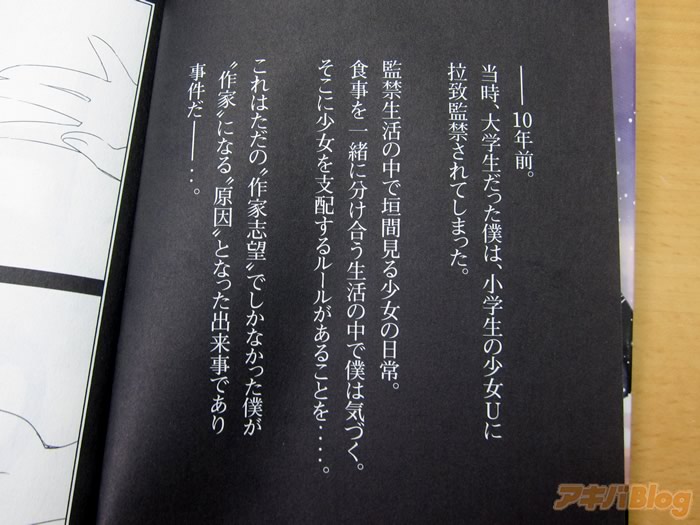 ── 10年前。
当時、大学生だった僕は、小学生の少女Uに
拉致監禁されてしまった。
監禁生活の中で垣間見る少女の日常。
食事を一緒に分け合う生活の中で僕は気づく。
そこに少女を支配するルールがあることを‥‥。
これはただの〝作家志望〟でしかなかった僕が
〝作家〟になる〝原因〟となった出来事であり
事件だ──‥。
アキバBlog